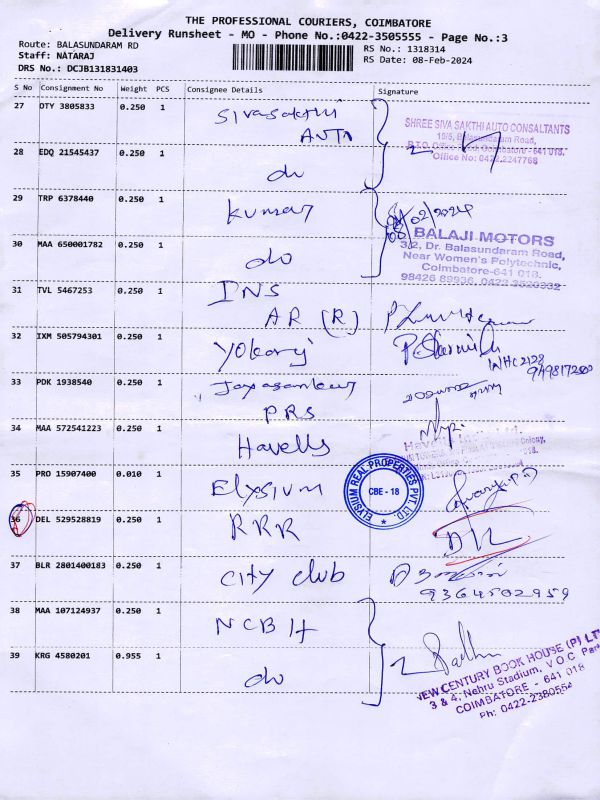 THE PROFESSIONAL COURIERS, COIMBATORE
Delivery Runsheet - MO - Phone No.:0422-3505555 - Page No.:3
Route: BALASUNDARAM RD
Staff: NATARAJ
DRS No.: DCJB131831403
RS No.: 1318314
RS Date: 08-Feb-2024
S No Consignment No Weight PCS Consignee Details Signature
27 DTY 3805833 0.250 1 Sivasakthi
AUTO
SHREE SIVA SAKTHI AUTO CONSALTANTS
10/5, Balasundaram Road,
R.T.O. Office Coimbatore - 641 018.
Office No: 0422-2247768
28 EDQ 21545437 0.250 1 do
29 TRP 6378440 0.250 1 Kumar
08/02/2024
BALAJI MOTORS
3/2, Dr. Balasundaram Road,
Near Women's Polytechnic,
Coimbatore-641 018.
98426 89936, 0422
30 MAA 650001782 0.250 1 do
31 TVL 5467253 0.250 1 INS
AR (R)
32 IXM 505794301 0.250 1 Yokaraj
33 PDK 1938540 0.250 1 Jayasankar
PRS
34 MAA 572541223 0.250 1 Havells
35 PRO 15907400 0.010 1 Elysium
ELYSIUM REAL PROPERTIES PVT. LTD.
CBE - 18
36 DEL 529528819 0.250 1 RRR
37 BLR 2801400183 0.250 1 City club
9364502959
38 MAA 107124937 0.250 1 NCBH
39 KRG 4580201 0.955 1 do
NEW CENTURY BOOK HOUSE (P) LTD
3 & 4, Nehru Stadium, V.O.C. Park
COIMBATORE - 641 018
Ph: 0422-2380554